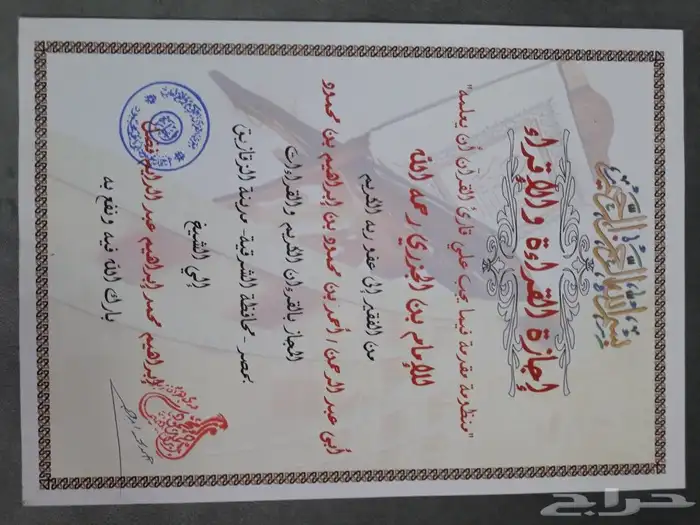 بسم الله الرحمن الرحيم
إجازة القراءة والإقراء
"منظومة مقدمة فيما يجب علي قارئ القرآن أن يعلمه"
للإمام بن الجزري رحمه الله
من الفقير إلى عفو ربه الكريم
أبى عبد الرحمن / أحمد بن محمود بن إبراهيم بن محمود
المجاز بالقرءان الكريم والقراءات
بمصر - محافظة الشرقية - مدينة الزقازيق
إلي الشيخ
إبراهيم محمد إبراهيم عبد الدايم
بارك الله فيه ونفع به
حراج